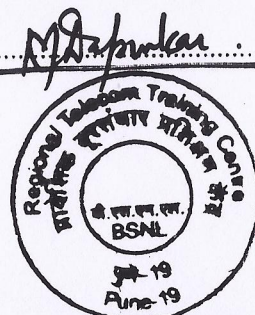 Regional Telecom Training Centre
क्षेत्रीय दूरसंचार प्रशिक्षण केंद्र
बी.एस.एन.एल.
BSNL
पुणे-19
Pune-19